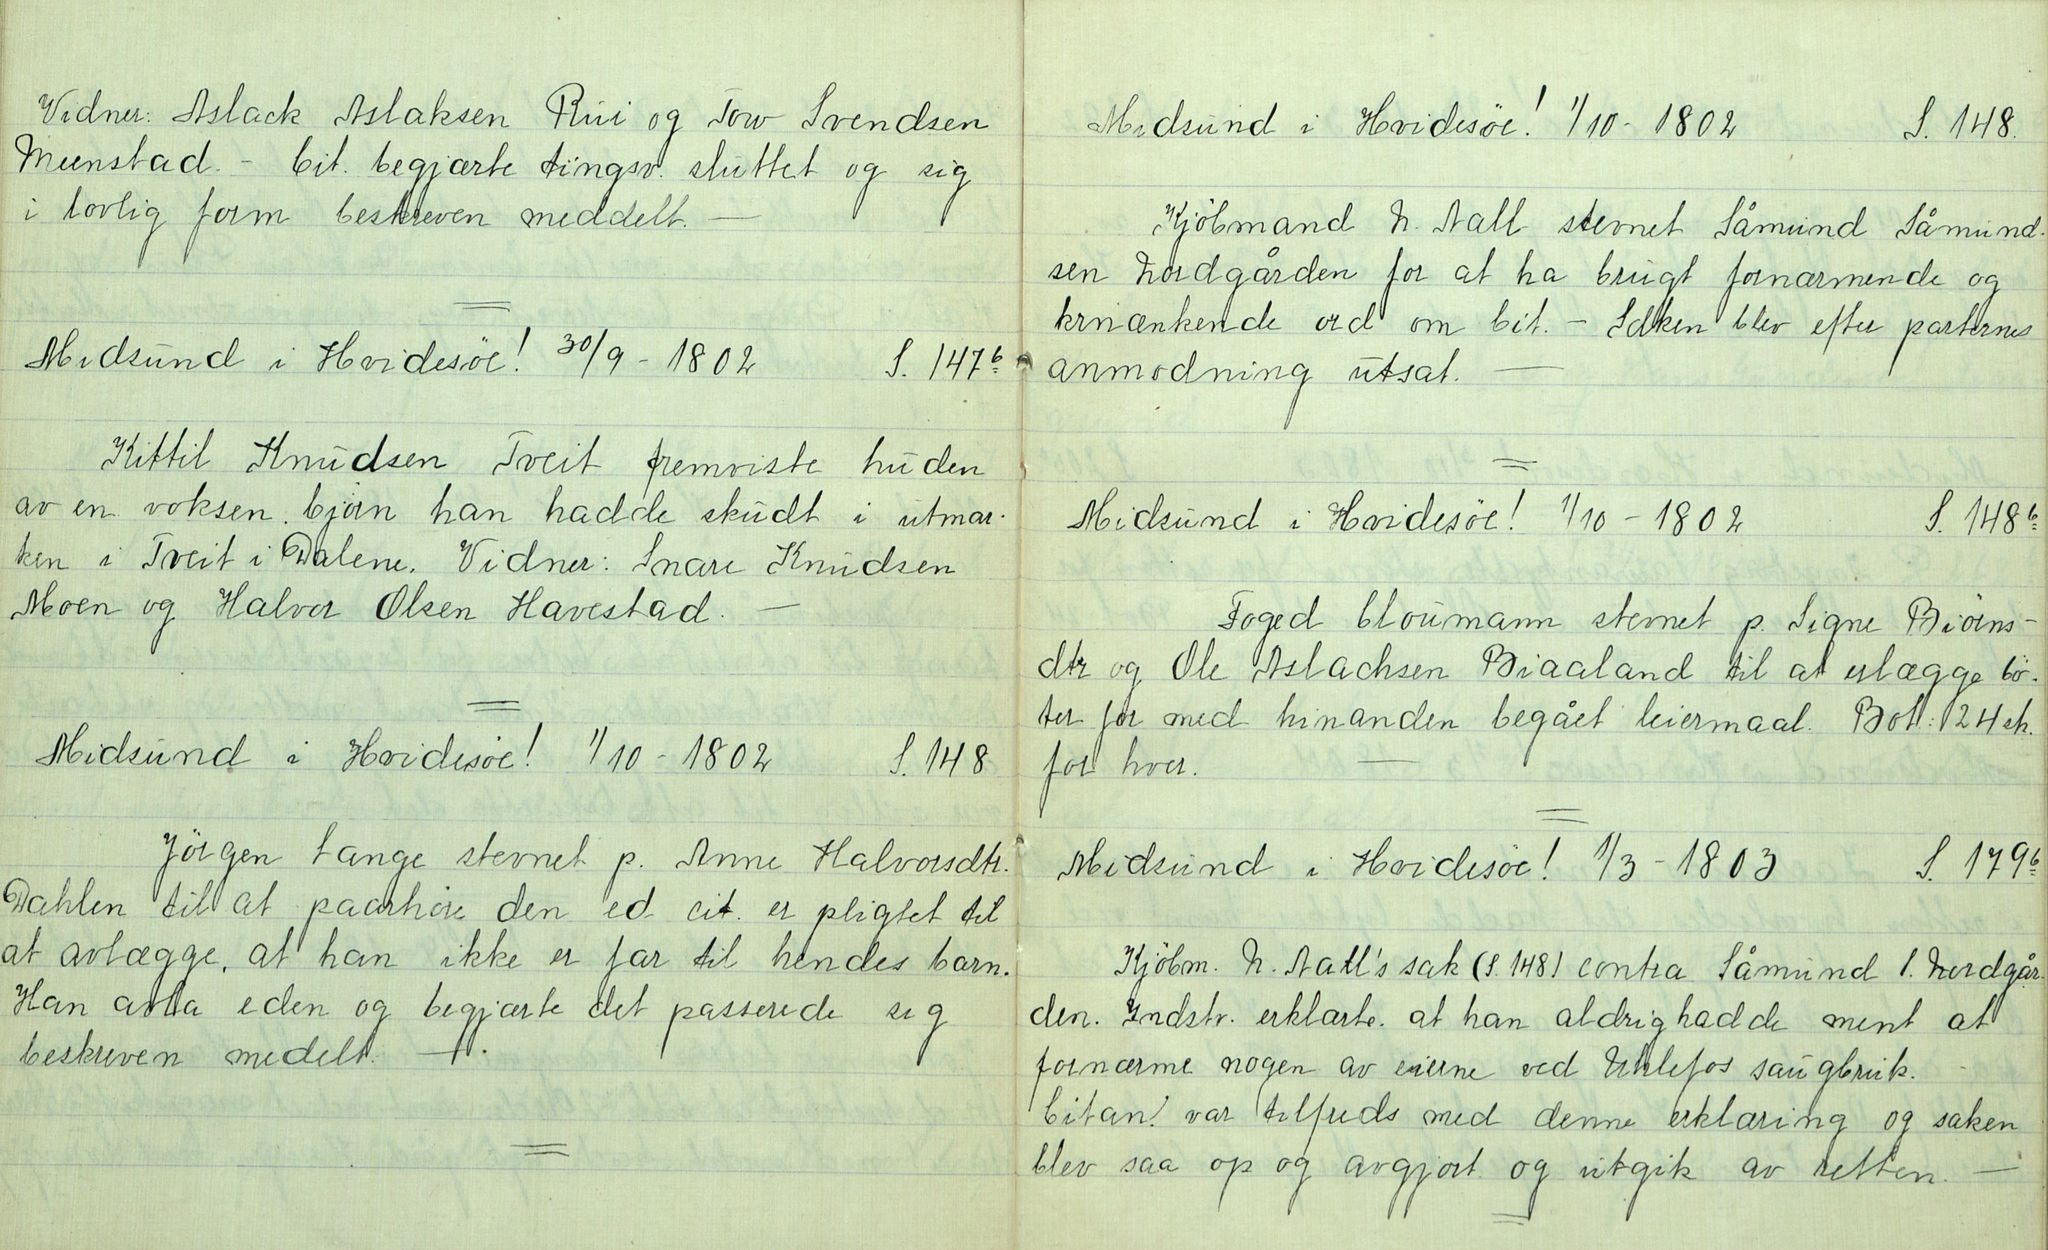 Vidner: Aslack Aslaksen Rui og Tow Svendsen
Meenstad. - Cit. begjærte tingsv. sluttet og sig
i lovlig form beskreven meddelt. —
Midsund i Hvidesöe! 30/9 - 1802 S. 147b
Kittil Knudsen Tveit fremviste huden
av en voksen björn han hadde skudt i utmar-
ken i Tveit i Dalene. Vidner: Snare Knudsen
Moen og Halvor Olsen Havestad. —
Midsund i Hvidesöe! 1/10 - 1802 S. 148
Jörgen Lange stevnet p. Anne Halvorsdtr.
Dahlen til at paarhöre den ed cit. er pligtet til
at avlægge, at han ikke er far til hendes barn.
Han avla eden og begjærte det passerede sig
beskreven medelt. —
Midsund i Hvidesöe! 1/10 - 1802 S. 148.
Kjöbmand N. Aall stevnet Såmund Såmund-
sen Nordgården for at ha brugt fornærmende og
krnænkende ord om Cit. - Saken blev efter parternes
anmodning utsat. —
Midsund i Hvidesöe! 1/10 - 1802 S. 148b
Foged Cloumann stevnet p. Signe Biörns-
dtr og Ole Aslachsen Biaaland til at erlægge bö-
ter for med hinanden begået leiermaal. Bot: 24 sk.
for hver. —
Midsund i Hvidesöe! 1/3 - 1803 S. 179b
Kjöbm. N. Aall's sak (S. 148) contra Såmund S. Nordgår-
den. Indstv. erklærte. at han aldrig hadde ment at
fornærme nogen av eierne ved Uhlefos saugbruk.
Citan! var tilfreds med denne erklæring og saken
blev saa op og avgjort og utgik av retten. —